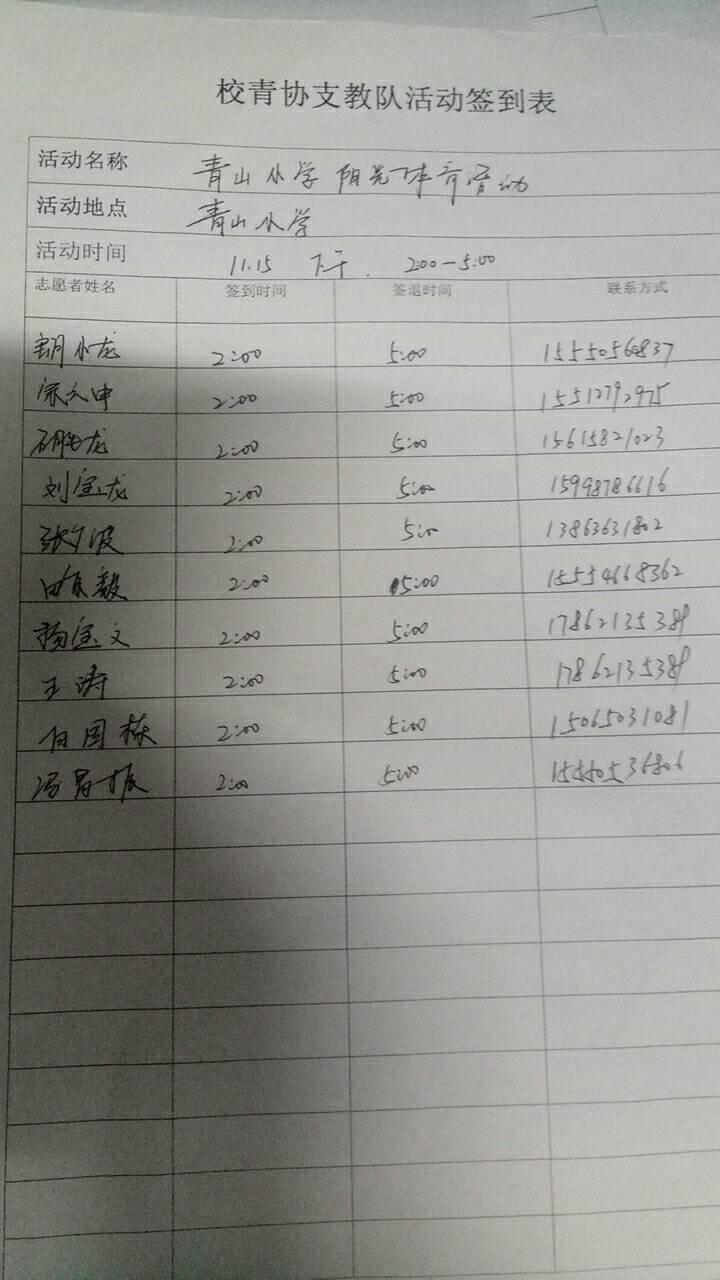 校青协支教队活动签到表
活动名称 青山小学阳光体育活动
活动地点 青山小学
活动时间 11.15 下午. 2:00—5:00
志愿者姓名 签到时间 签退时间 联系方式
胡小龙 2:00 5:00
2:00 5:00 15512792975
2:00 5:00 15615821023
刘宝龙 2:00 5:00 15998786616
张夕波 2:00 5:00 13863631802
田东毅 2:00 5:00 15554668362
杨宝文 2:00 5:00 17862135389
王涛 2:00 5:00 17862135389
白国栋 2:00 5:00 15065031081
冯昌振 2:00 5:00